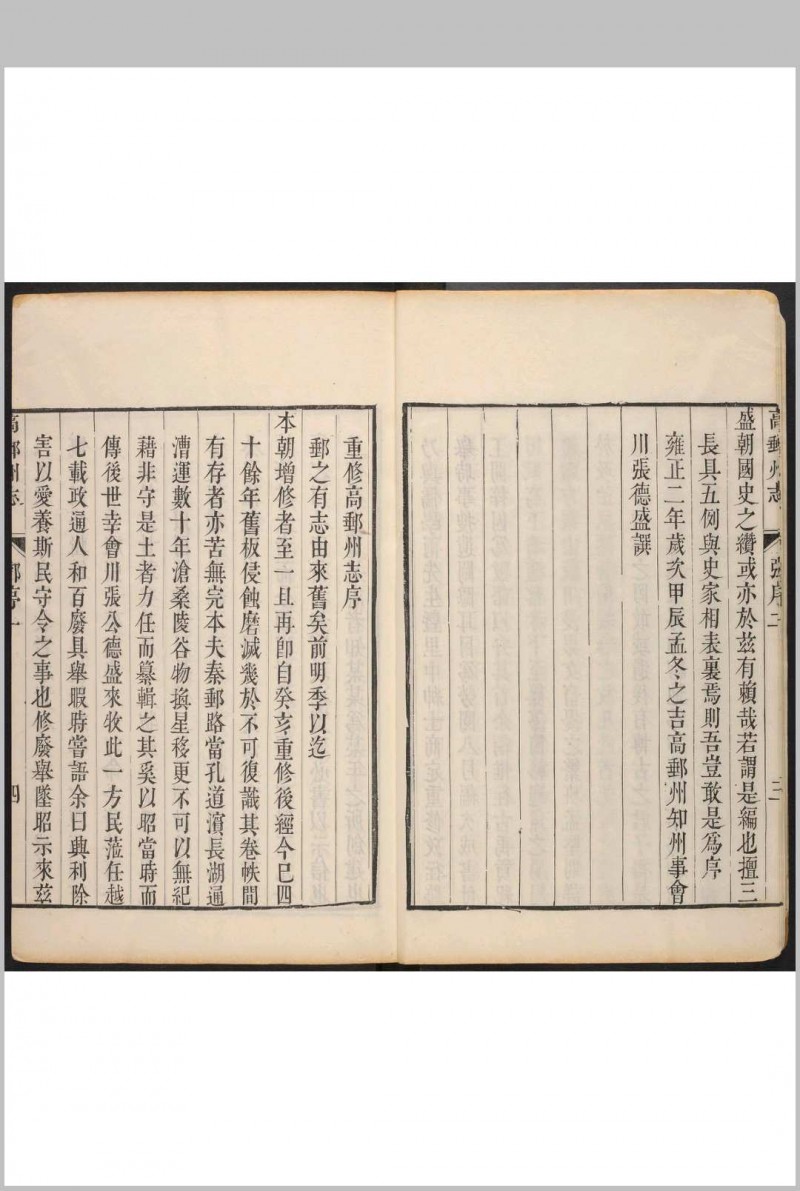 高郵州志 張序 三
盛朝國史之纘或亦於茲有賴哉若謂是編也擅三
長具五例與史家相表裏焉則吾豈敢是爲序
雍正二年歲次甲辰孟冬之吉高郵州知州事會
川張德盛譔
重修高郵州志序
郵之有志由來舊矣前明季以迄
本朝增修者至一且再卽自癸亥重修後經今已四
十餘年舊板侵蝕磨滅幾於不可復識其卷帙間
有存者亦苦無完本夫秦郵路當孔道濱長湖通
漕運數十年滄桑陵谷物換星移更不可以無紀
藉非守是土者力任而纂輯之其奚以昭當時而
傳後世幸會川張公德盛來牧此一方民蒞任越
七載政通人和百廢具舉暇時嘗語余曰興利除
害以愛養斯民守令之事也修廢舉墜昭示來茲
高郵州志 序一 四